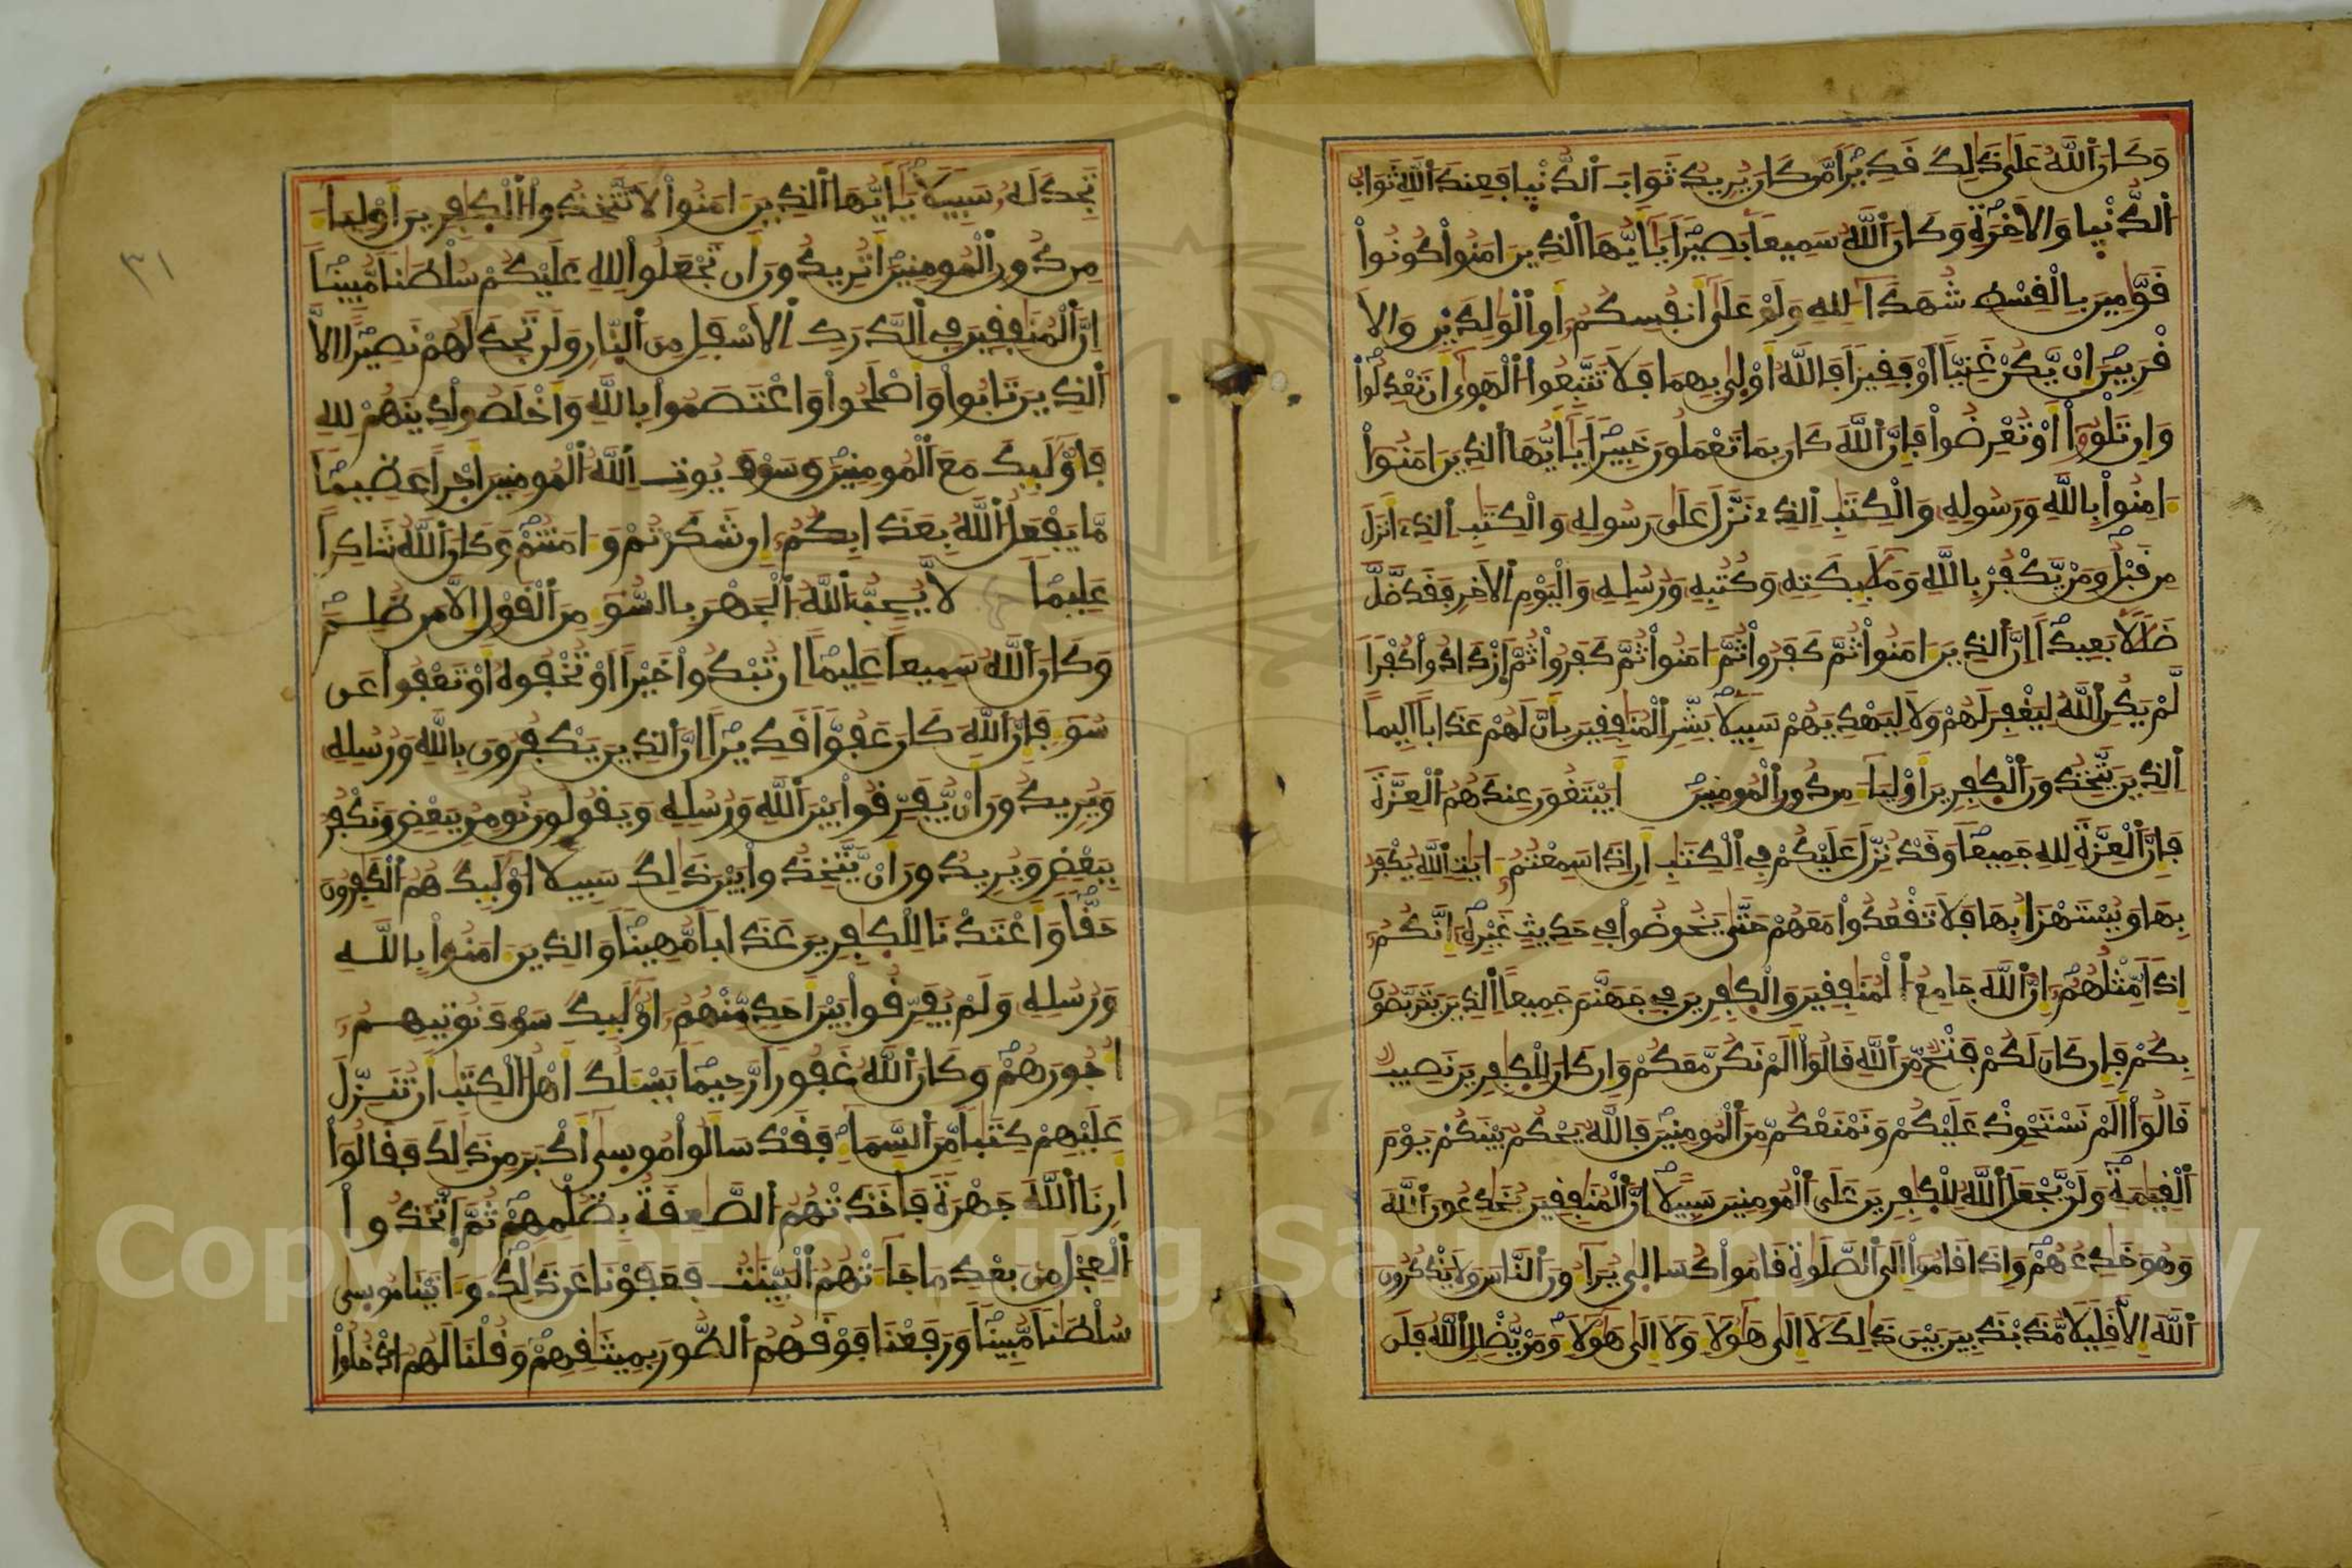 وَكَانَ اَللَّهُ عَلَىٰ ذَٰلِكَ قَدِيرًا مَّن كَانَ يُرِيدُ ثَوَابَ اَلدُّنْيَا فَعِندَ اَللَّهِ ثَوَابُ
اَلدُّنْيَا وَالَاخِرَةِ وَكَانَ اَللَّهُ سَمِيعاً بَصِيرًا يَٰأَيُّهَا اَلذِينَ ءَامَنُواْ كُونُواْ
قَوَّٰمِينَ بِالْقِسْطِ شُهَدَآءَ لِلهِ وَلَوْ عَلَىٰ أَنفُسِكُمُ أَوِ اِلْوَٰلِدَيْنِ وَالَا
قْرَبِينَ إِنْ يَّكُنْ غَنِيّاً اَوْ فَقِيراً فَاللَّهُ أَوْلَىٰ بِهِمَا فَلَا تَتَّبِعُواْ اَلْهَوَىٰ أَن تَعْدِلُواْ
وَإِن تَلْوُۥٓاْ أَوْ تُعْرِضُواْ فَإِنَّ اَللَّهَ كَانَ بِمَا تَعْمَلُونَ خَبِيرًا يَٰأَيُّهَا اَلذِينَ ءَامَنُوٓاْ
ءَامِنُواْ بِاللَّهِ وَرَسُولِهِ وَالْكِتَٰبِ اِلذِي نَزَّلَ عَلَىٰ رَسُولِهِ وَالْكِتَٰبِ اِلذِي أَنزَلَ
مِن قَبْلُ وَمَنْ يَّكْفُرْ بِاللَّهِ وَمَلَٰٓئِكَتِهِ وَكُتُبِهِ وَرُسُلِهِ وَالْيَوْمِ اِلَاخِرِ فَقَد ضَّلَّ
ضَلَٰلًا بَعِيدًا إِنَّ اَلذِينَ ءَامَنُواْ ثُمَّ كَفَرُواْ ثُمَّ ءَامَنُواْ ثُمَّ كَفَرُواْ ثُمَّ اَزْدَادُواْ كُفْراً
لَّمْ يَكُنِ اِللَّهُ لِيَغْفِرَ لَهُمْ وَلَا لِيَهْدِيَهُمْ سَبِيلًا بَشِّرِ اِلْمُنَٰفِقِينَ بِأَنَّ لَهُمْ عَذَاباً اَلِيماً
اِلذِينَ يَتَّخِذُونَ اَلْكَٰفِرِينَ أَوْلِيَآءَ مِن دُونِ اِلْمُومِنِينَ أَيَبْتَغُونَ عِندَهُمُ اَلْعِزَّةَ
فَإِنَّ اَلْعِزَّةَ لِلهِ جَمِيعاً وَقَدْ نُزِّلَ عَلَيْكُمْ فِي اِلْكِتَٰبِ أَنِ اِذَا سَمِعْتُمُ ءَايَٰتِ اِللَّهِ يُكْفَرُ
بِهَا وَيُسْتَهْزَأُ بِهَا فَلَا تَقْعُدُواْ مَعَهُمْ حَتَّىٰ يَخُوضُواْ فِي حَدِيثٍ غَيْرِهِ إِنَّكُمُ
إِذاً مِّثْلُهُمُ إِنَّ اَللَّهَ جَامِعُ اُلْمُنَٰفِقِينَ وَالْكَٰفِرِينَ فِي جَهَنَّمَ جَمِيعاً اِلذِينَ يَتَرَبَّصُونَ
بِكُمْ فَإِن كَانَ لَكُمْ فَتْحٌ مِّنَ اَللَّهِ قَالُوٓاْ أَلَمْ نَكُن مَّعَكُمْ وَإِن كَانَ لِلْكَٰفِرِينَ نَصِيبٌ
قَالُوٓاْ أَلَمْ نَسْتَحْوِذْ عَلَيْكُمْ وَنَمْنَعْكُم مِّنَ اَلْمُومِنِينَ فَاللَّهُ يَحْكُمُ بَيْنَكُمْ يَوْمَ
اَلْقِيَٰمَةِ وَلَنْ يَّجْعَلَ اَللَّهُ لِلْكَٰفِرِينَ عَلَى اَلْمُومِنِينَ سَبِيلًا إِنَّ اَلْمُنَٰفِقِينَ يُخَٰدِعُونَ اَللَّهَ
وَهُوَ خَٰدِعُهُمْ وَإِذَا قَامُوٓاْ إِلَى اَلصَّلَوٰةِ قَامُواْ كُسَالَىٰ يُرَآءُونَ اَلنَّاسَ وَلَا يَذْكُرُونَ
اَللَّهَ إِلَّا قَلِيلًا مُّذَبْذَبِينَ بَيْنَ ذَٰلِكَ لَآ إِلَىٰ هَٰٓؤُلَآءِ وَلَآ إِلَىٰ هَٰٓؤُلَآءِ وَمَنْ يُّضْلِلِ اِللَّهُ فَلَن
تَجِدَ لَهُ سَبِيلًا يَٰأَيُّهَا اَلذِينَ ءَامَنُواْ لَا تَتَّخِذُواْ اُلْكَٰفِرِينَ أَوْلِيَآءَ
مِن دُونِ اِلْمُومِنِينَ أَتُرِيدُونَ أَن تَجْعَلُواْ لِلهِ عَلَيْكُمْ سُلْطَٰناً مُّبِيناً
اِنَّ اَلْمُنَٰفِقِينَ فِي اِلدَّرَكِ اِلَاسْفَلِ مِنَ اَلنَّارِ وَلَن تَجِدَ لَهُمْ نَصِيراً اِلَّا
اَلذِينَ تَابُواْ وَأَصْلَحُواْ وَاعْتَصَمُواْ بِاللَّهِ وَأَخْلَصُواْ دِينَهُمْ لِلهِ
فَأُوْلَٰٓئِكَ مَعَ اَلْمُومِنِينَ وَسَوْفَ يُوتِ اِللَّهُ اُلْمُومِنِينَ أَجْراً عَظِيماً
مَّا يَفْعَلُ اُللَّهُ بِعَذَابِكُمُ إِن شَكَرْتُمْ وَءَامَنتُمْ وَكَانَ اَللَّهُ شَاكِراً
عَلِيماً لَّا يُحِبُّ اُللَّهُ اُلْجَهْرَ بِالسُّوٓءِ مِنَ اَلْقَوْلِ إِلَّا مَن ظُلِمَ
وَكَانَ اَللَّهُ سَمِيعاً عَلِيماً اِن تُبْدُواْ خَيْراً اَوْ تُخْفُوهُ أَوْ تَعْفُواْ عَن
سُوٓءٍ فَإِنَّ اَللَّهَ كَانَ عَفُوّاً قَدِيراً اِنَّ اَلذِينَ يَكْفُرُونَ بِاللَّهِ وَرُسُلِهِ
وَيُرِيدُونَ أَنْ يُّفَرِّقُواْ بَيْنَ اَللَّهِ وَرُسُلِهِ وَيَقُولُونَ نُومِنُ بِبَعْضٍ وَنَكْفُرُ
بِبَعْضٍ وَيُرِيدُونَ أَنْ يَّتَّخِذُواْ بَيْنَ ذَٰلِكَ سَبِيلًا اُوْلَٰٓئِكَ هُمُ اُلْكَٰفِرُونَ
حَقّاً وَأَعْتَدْنَا لِلْكَٰفِرِينَ عَذَاباً مُّهِيناً وَالذِينَ ءَامَنُواْ بِاللَّهِ
وَرُسُلِهِ وَلَمْ يُفَرِّقُواْ بَيْنَ أَحَدٍ مِّنْهُمُ أُوْلَٰٓئِكَ سَوْفَ نُوتِيهِمُ
أُجُورَهُمْ وَكَانَ اَللَّهُ غَفُوراً رَّحِيماً يَسْـَٔلُكَ أَهْلُ اُلْكِتَٰبِ أَن تُنَزِّلَ
عَلَيْهِمْ كِتَٰباً مِّنَ اَلسَّمَآءِ فَقَدْ سَأَلُواْ مُوسَىٰ أَكْبَرَ مِن ذَٰلِكَ فَقَالُوٓاْ
أَرِنَا اَللَّهَ جَهْرَةً فَأَخَذَتْهُمُ اُلصَّٰعِقَةُ بِظُلْمِهِمْ ثُمَّ اَتَّخَذُواْ
اُلْعِجْلَ مِنۢ بَعْدِ مَا جَآءَتْهُمُ اُلْبَيِّنَٰتُ فَعَفَوْنَا عَن ذَٰلِكَ وَءَاتَيْنَا مُوسَىٰ
سُلْطَٰناً مُّبِيناً وَرَفَعْنَا فَوْقَهُمُ اُلطُّورَ بِمِيثَٰقِهِمْ وَقُلْنَا لَهُمُ اُدْخُلُواْ
٣١
Copyright © King Saud University
1957